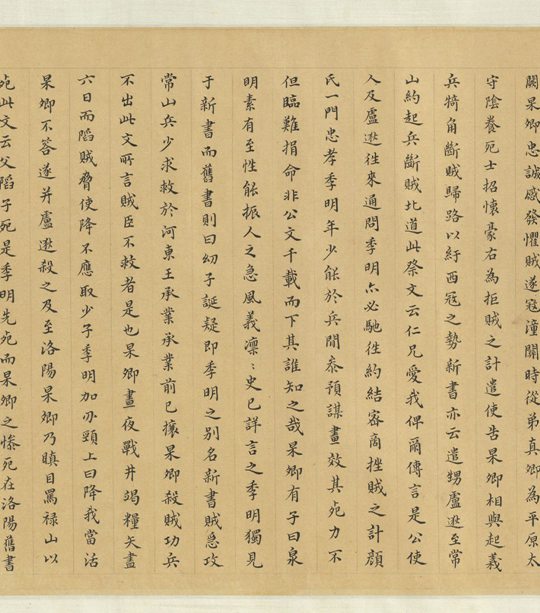 闕杲卿忠誠感發懼賊遂寇潼關時從弟真卿為平原太
守陰養死士招懷豪右為拒賊之計遣使告杲卿相與起義
兵犄角斷賊歸路以紓西寇之勢新書亦云遣甥盧逖至常
山約起兵斷賊北道此祭文云仁兄愛我俾爾傳言是公使
人及盧逖往來通問季明亦必馳往約結密商挫賊之計顏
氏一門忠孝季明年少能於兵間叅預謀畫效其死力不
但臨難捐命非公文千載而下其誰知之哉杲卿有子曰泉
明素有至性能振人之急風義凛〻史已詳言之季明獨見
于新書而舊書則曰幼子誕疑即季明之別名新書賊急攻
常山兵少求救於河東王承業承業前已攘杲卿殺賊功兵
不出此文所言賊臣不救者是也杲卿晝夜戰井竭糧矢盡
六日而陷賊脅使降不應取少子季明加刃頸上曰降我當活
杲卿不荅遂并盧逖殺之及至洛陽杲卿乃瞋目罵祿山以
死此文云父陷子死是季明先死而杲卿之慘死在洛陽舊書